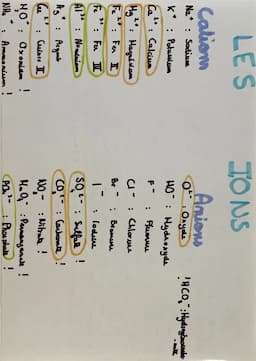 LES IONS
Cations
Na⁺ : Sodium
K⁺ : Potassium
Ca²⁺ : Calcium
Mg²⁺ : Magnésium
Fe²⁺ : Fer II
Fe³⁺ : Fer III
Al³⁺ : Aluminium
Ag⁺ : Argent
Cu²⁺ : Cuivre II
H₃O⁺ : Oxonium !
NH₄⁺ : Ammonium !
Anions
O²⁻ : Oxyde
HO⁻ : Hydroxyde
F⁻ : Fluorure
Cl⁻ : Chlorure
Br⁻ : Bromure
I⁻ : Iodure
SO₄²⁻ : Sulfate !
CO₃²⁻ : Carbonate !
NO₃⁻ : Nitrate !
MnO₄⁻ : Permanganate !
PO₄³⁻ : Phosphate !
! HCO₃⁻ : Hydrogénocarbo
-nate